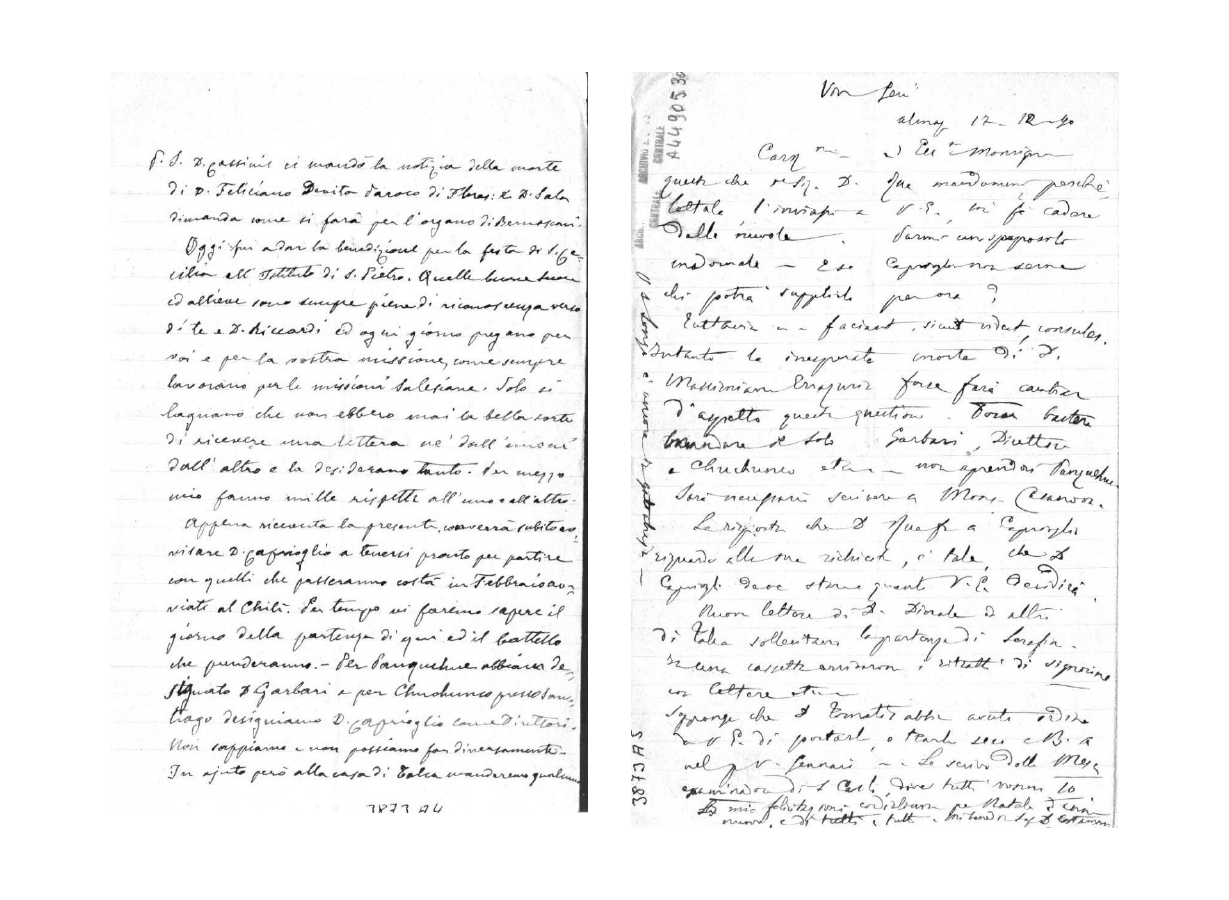 P. S. D. Cassinis ci mandò la notizia della morte
di D. Feliciano Devito Paroco di Flores: e D. Sala
dimanda come si farà per l'organo di Bernasconi.
Oggi fui a dar la benedizione per la festa di S. Ce-
cilia all'Istituto di S. Pietro. Quelle buone suore
ed allieve sono sempre piene di riconoscenza verso
di te e D. Riccardi ed ogni giorno pregano per
voi e per la vostra missione, come sempre
lavorano per le missioni Salesiane. Solo si
lagnano che non ebbero mai la bella sorte
di ricevere una lettera nè dall'uno nè
dall'altro e la desiderano tanto. Per mezzo
mio fanno mille rispetti all'uno e all'altro.
Appena ricevuta la presente, converrà subito av-
visare D. Caprioglio a tenersi pronto per partire
con quelli che passeranno costà in Febbraio av-
viati al Chilì. Per tempo vi faremo sapere il
giorno della partenza di qui ed il battello
che prenderanno. - Per Panquehue abbiam de-
signato D. Garbari e per Chuchunco presso San-
tiago designiamo D. Caprioglio come Direttori.
Non sappiamo e non possiamo far diversamente.
In ajuto però alla casa di Talca manderemo qualcuno
3873 A4
ARCHIVIO
CENTRALE
A4490530
12 - 12 - 90
Monsignor
D. Rua mandommi perchè
l'inviassi a V. E., mi fè cadere
dalle nuvole. Parmi uno sproposito
madornale - E se Caprioglio non serve
chi potrà supplirlo per ora?
faciant, sicut vident, consules.
Intanto la inesperata morte di D.
Massimiano Errazuriz forse farà cambiar
d'aspetto queste questioni. Forse basterà
mandare il solo Garbari, Direttore
a Chuchunco - non aprendosi Panquehue
Sarà necessario scrivere a Mons. Casanova.
La risposta che D. Rua fe a Caprioglio
riguardo alle sue richieste, è tale, che D.
Caprioglio deve stare quanto V. E. deciderà.
Nuove lettere di D. ed altri
di Talca sollecitano la partenza di Serafin.
In una cassetta arrivarono i ritratti di signorine
con lettere
Suppongo che D. abbia avuto ordine
V. E. di portarle, o
nel p. v. Gennaio - Le scrivo dalla Mesa
examinadora di S. Carlo, dove tutti
mie felicitazioni cordialissime pe Natale
nuovo, e di tutti e tutte
3873 A5